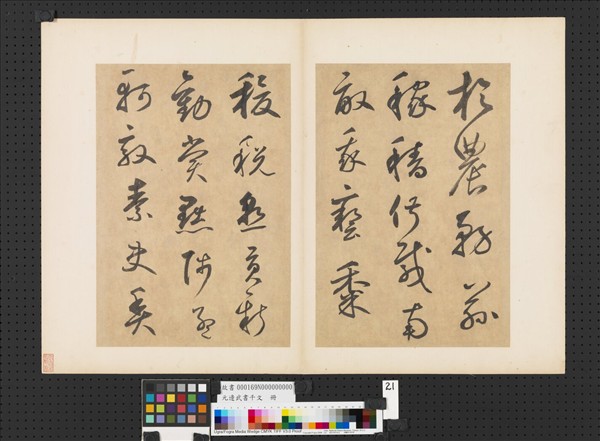 於農務茲
稼穡俶載南
畝我藝黍
稷稅熟貢新
勸賞黜陟孟
軻敦素史魚
故書 000169N000000000
元邊武書千文 冊
21